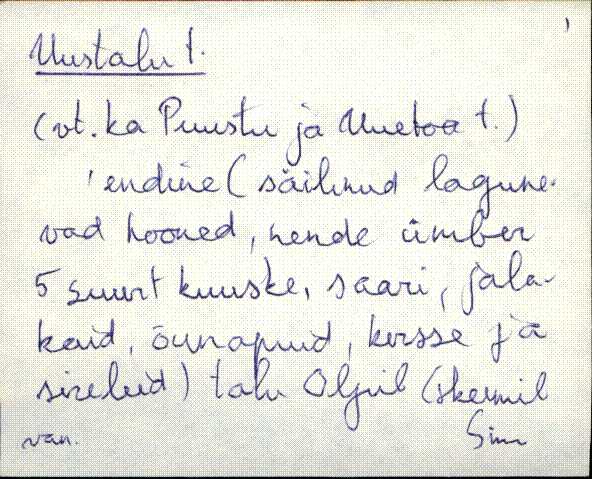 Uustalu t.
(vt. ka Puustu ja Uuetoa t.)
'endine (säilinud lagune-
vad hooned, nende ümber
5 suurt kuuske, saari, jala-
kaid, õunapuid, kirsse ja
sireleid) talu Oljul (skeemil
van.